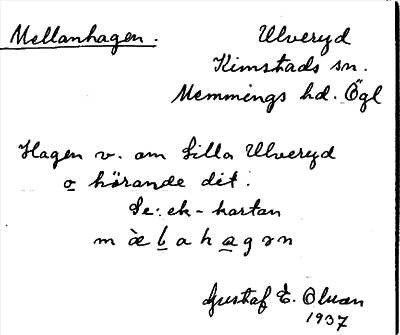 Mellanhagen. Ulveryd
Kimstads sn.
Memmings hd. Ögl
Hagen v. om Lilla Ulveryd
o hörande dit.
Se: ek-kartan
m ὰ̈e l a h a g ə n
Gustaf E. Olsson
1937